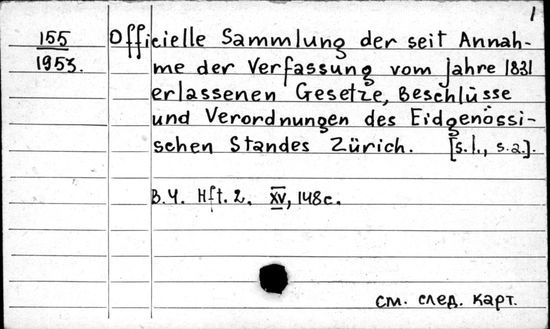 1
155 Officielle Sammlung der seit Annah-
1953. me der Verfassung vom Jahre 1831
erlassenen Gesetze, Beschlüsse
und Verordnungen des Eidgenössi-
schen Standes Zürich. [s.l., s.a.].
B.4. Hft. 2. XV, 148c.
см. след. карт.